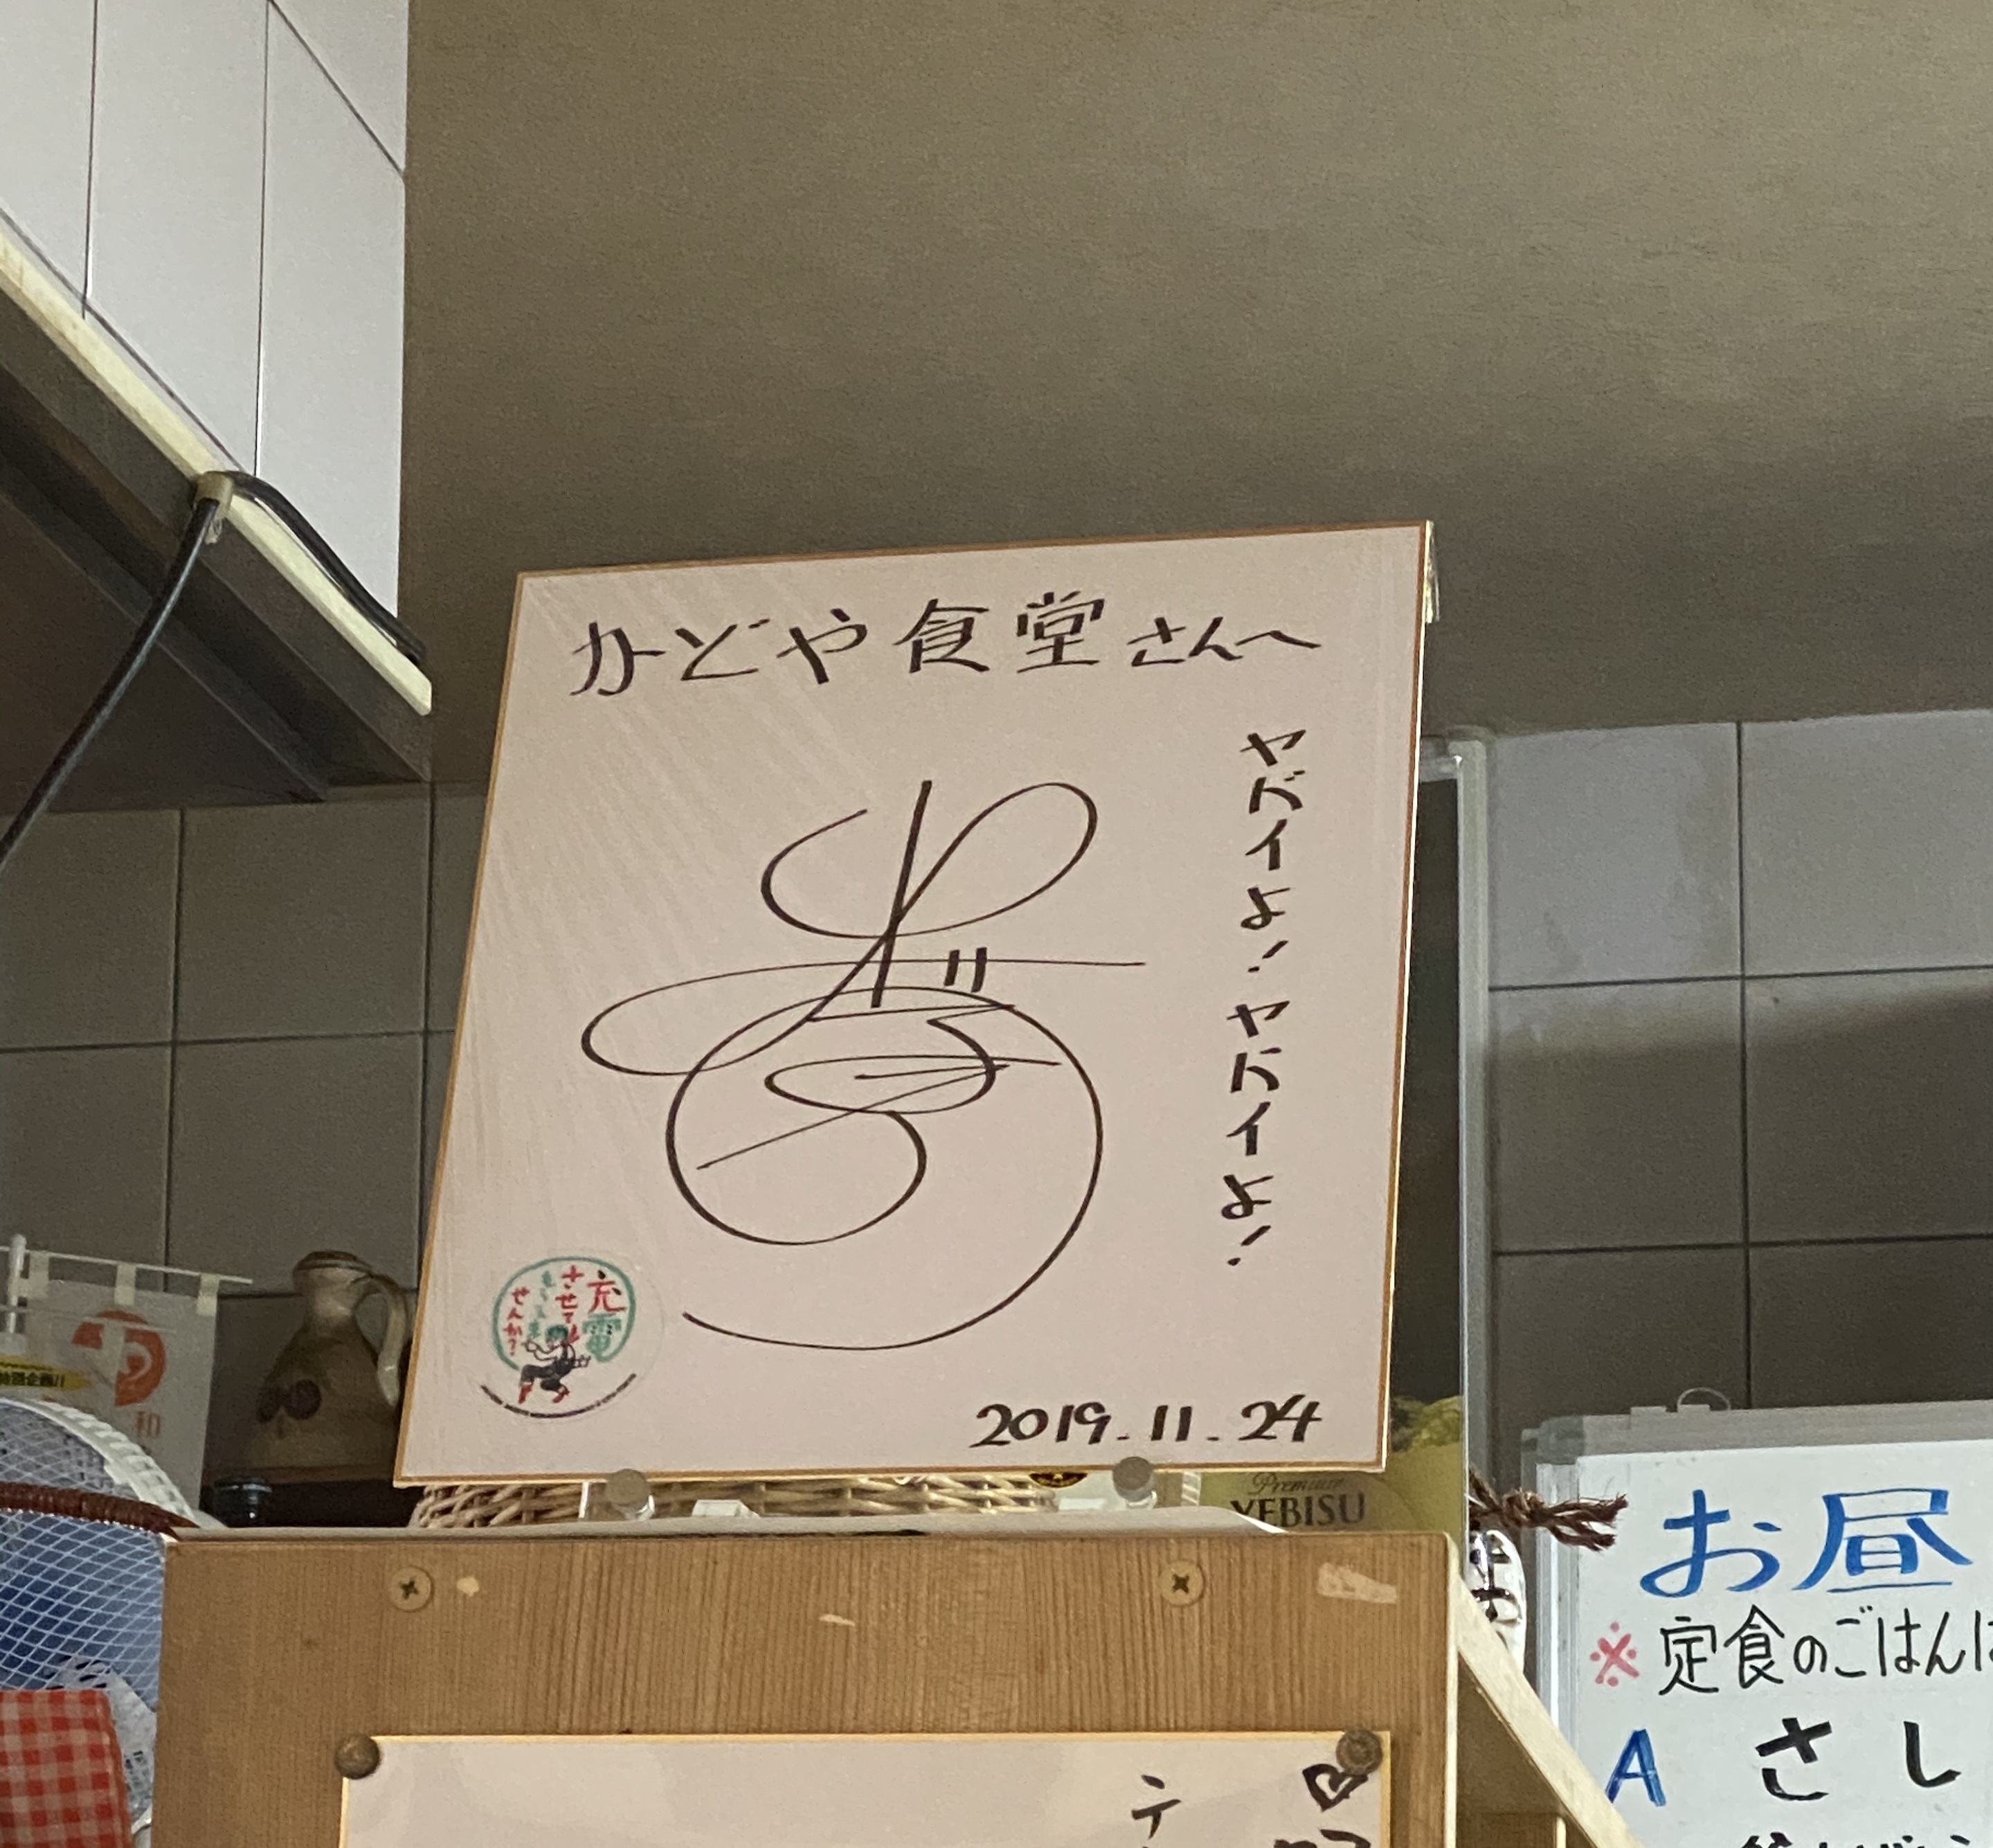 かどや食堂さんへ
ヤバイよ!ヤバイよ!
充電
させて
せんか?
2019.11.24
Premium
YEBISU
お昼
※定食のごはんは
A さし
テ